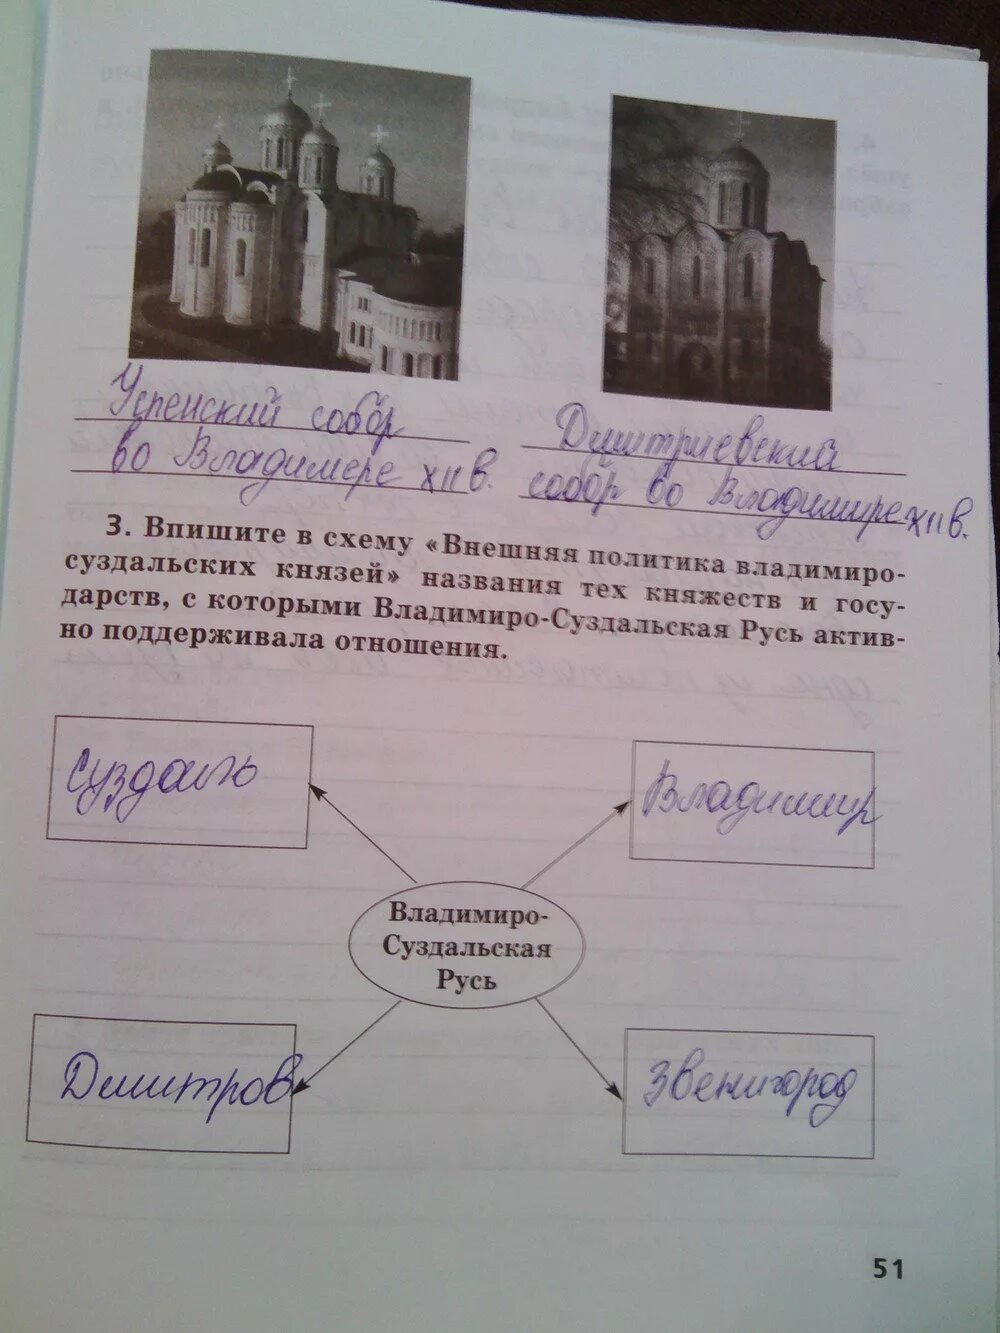 Успенский собор
во Владимере XII в.
Дмитриевский
собор во Владимире XII в.
3. Впишите в схему «Внешняя политика владимиро-
суздальских князей» названия тех княжеств и госу-
дарств, с которыми Владимиро-Суздальская Русь актив-
но поддерживала отношения.
Суздаль
Владимир
Владимиро-
Суздальская
Русь
Дмитров
Звенигород
51